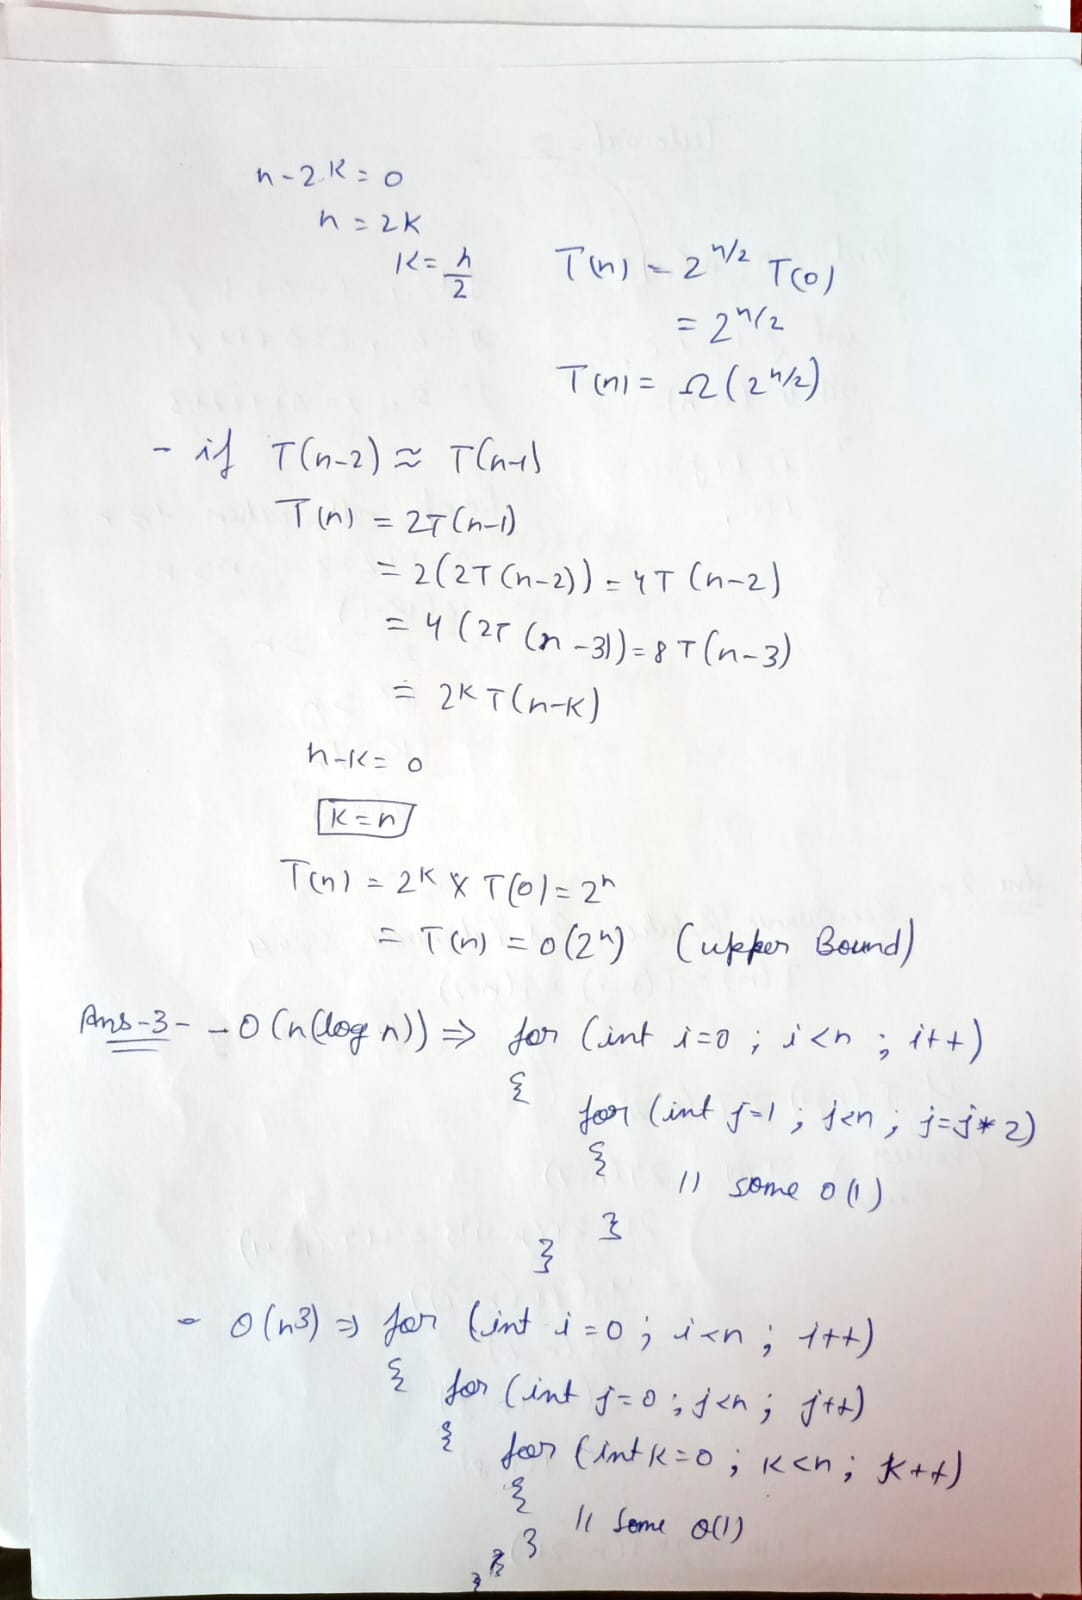 n-2K=0
n=2K
K=n/2
T(n) = 2^n/2 T(0)
= 2^n/2
T(n) = Ω(2^n/2)
- if T(n-2) ≈ T(n-1)
T(n) = 2T(n-1)
= 2(2T(n-2)) = 4T(n-2)
= 4(2T(n-3)) = 8T(n-3)
= 2^K T(n-K)
n-K=0
K=n
T(n) = 2^K × T(0) = 2^n
= T(n) = O(2^n) (upper Bound)
Ans-3- - O(n(log n)) ⇒ for (int i=0 ; i<n ; i++)
{
for (int j=1 ; j<n ; j=j*2)
{
// some O(1)
}
}
- O(n^3) ⇒ for (int i=0 ; i<n ; i++)
{ for (int j=0 ; j<n ; j++)
{ for (int k=0 ; k<n ; k++)
{
// Some O(1)
}
}
}